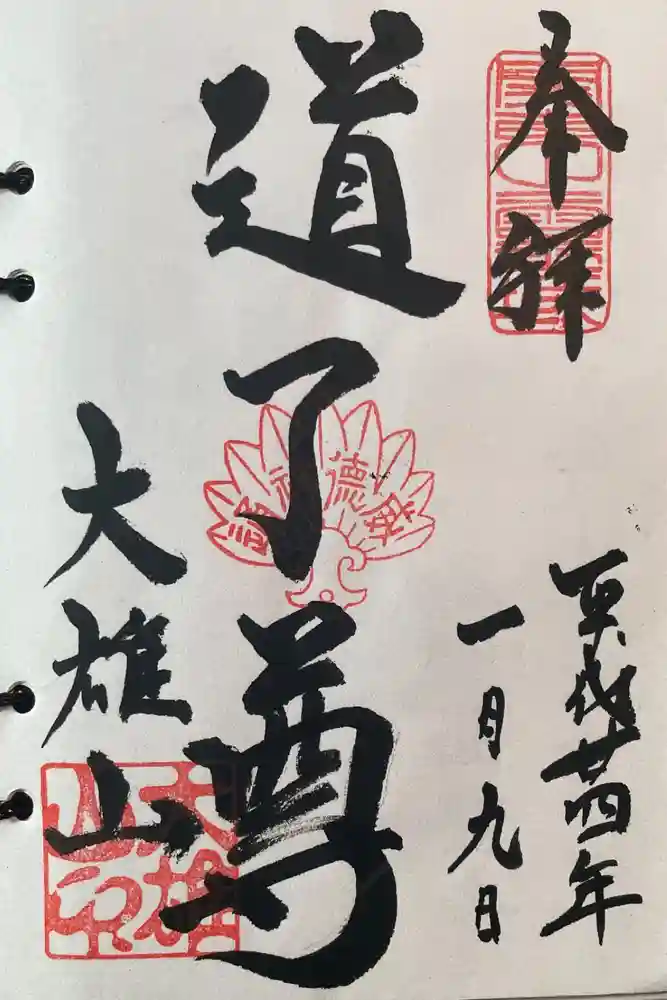 奉拝
平成廿四年
一月九日
道了尊
大雄山
大雄山印